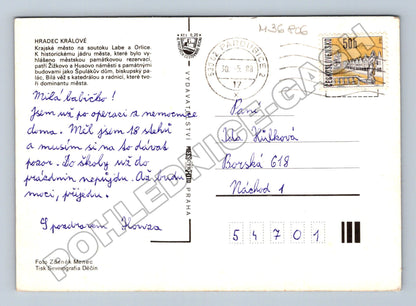 HRADEC KRÁLOVÉ
Krajské město na soutoku Labe a Orlice.
K historickému jádru města, které bylo vy-
hlášeno městskou památkovou rezervací,
patří Žižkovo a Husovo náměstí s památnými
budovami jako Špulákův dům, biskupský pa-
lác, Bílá věž a katedrálou a radnicí, které tvo-
ří dominantu města.
Milá babičko!
Jsem už po operaci z nemocnice
doma. Měl jsem 18 stehů
a musím si na to dávat
pozor. Do školy už do
prázdnin nepůjdu. Až budu
moci, přijedu.
S pozdravem Honza
Foto Zdeněk Menec
Tisk Severografia Děčín
VYDAVATELSTVÍ
PRAHA
M36 806
PARDUBICE 2
17
50h
Paní
Ida Hůlková
Borská 618
Náchod 1
5 4 7 0 1
POHLEDNICE-GASH